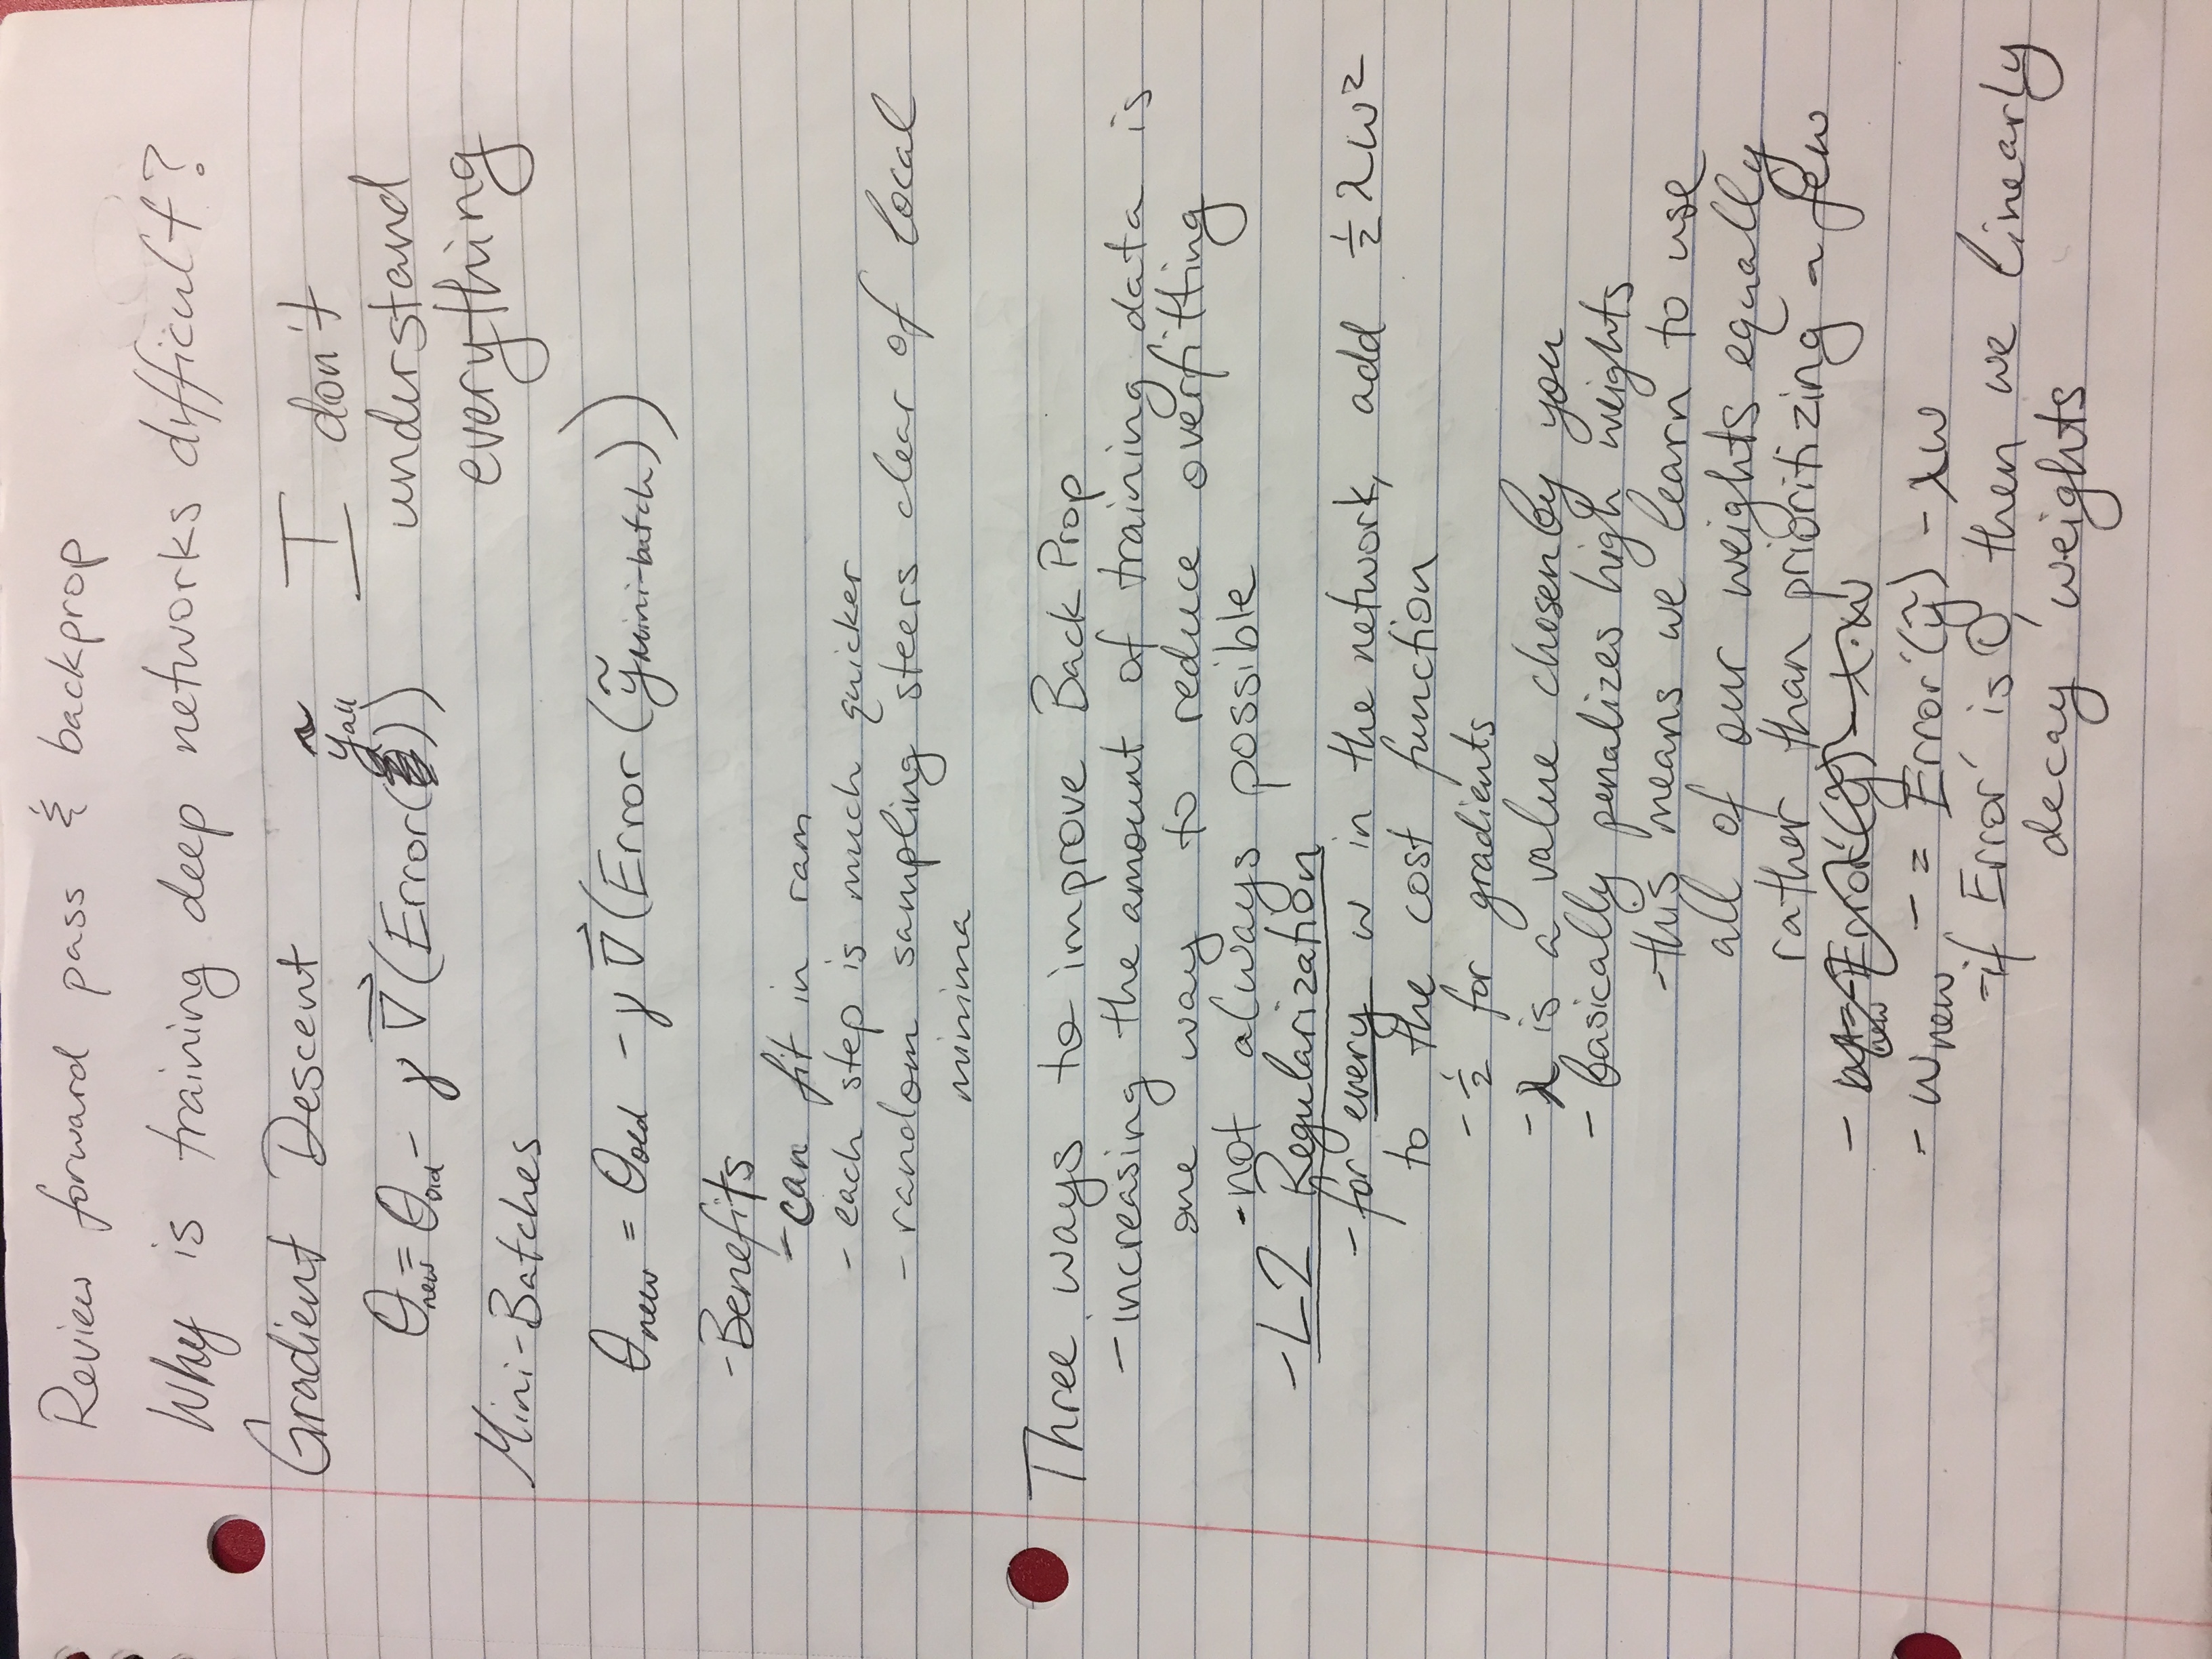 Review forward pass & backprop
Why is training deep networks difficult?
Gradient Descent
θnew = θold - γ ∇⃗(Error(ỹall))
I don't
understand
everything
Mini-Batches
θnew = θold - γ ∇⃗(Error(ỹmini-batch))
-Benefits
-can fit in ram
- each step is much quicker
- random sampling steers clear of local
minima
Three ways to improve Back Prop
-increasing the amount of training data is
one way to reduce overfitting
-not always possible
-L2 Regularization
-for every w in the network, add ½λw²
to the cost function
-½ for gradients
-λ is a value chosen by you
- basically penalizes high weights
-this means we learn to use
all of our weights equally
rather than prioritizing a few
- wnew -= Error'(ỹ) - λw
-if Error' is 0, then we linearly
decay weights